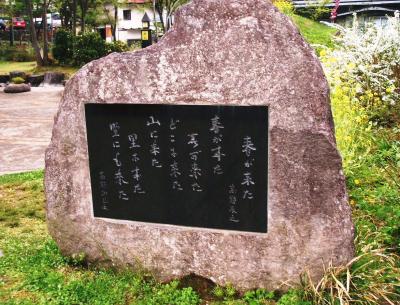 春が来た
高野辰之
春が来た
春が来た
どこに来た
山に来た
里に来た
野にも来た